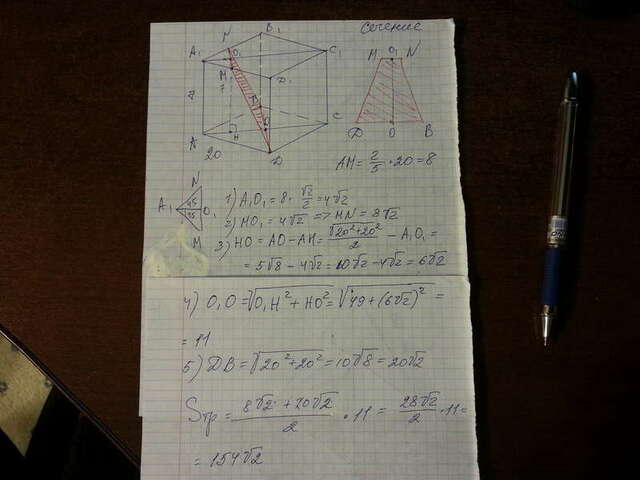 Сечение
N
B₁
A₁
O₁
C₁
M
D₁
7
7
B
A
H
O
C
20
D
M O₁ N
D O B
AM = 2/5 · 20 = 8
N
A₁ 45 O₁
45
M
1) A₁O₁ = 8 · √2/2 = 4√2
2) MO₁ = 4√2 => MN = 8√2
3) HO = AO - AH = √20²+20²/2 - A₁O₁ =
= 5√8 - 4√2 = 10√2 - 4√2 = 6√2
4) O₁O = √O₁H² + HO² = √49 + (6√2)² =
= 11
5) DB = √20² + 20² = 10√8 = 20√2
Sтр = 8√2 + 20√2/2 · 11 = 28√2/2 · 11 =
= 154√2